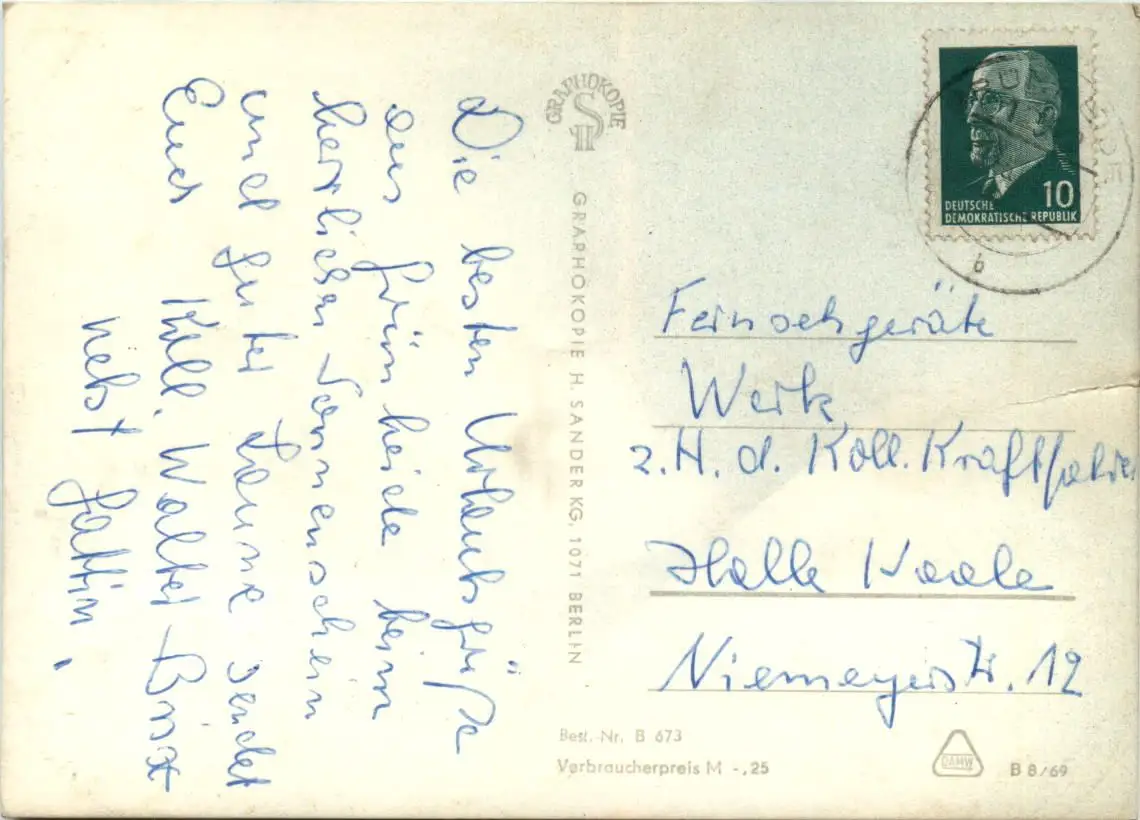 Die besten Urlaubsgrüße
aus Grünheide beim
herrlichen Sonnenschein
und guter Laune sendet
Euch Koll. Walter
nebst Gattin.
GRAPHOKOPIE
GRAPHOKOPIE H. SANDER KG, 1071 BERLIN
10
DEUTSCHE
DEMOKRATISCHE REPUBLIK
b
Fernsehgeräte
Werk
z. H. d. Koll. Kraftfahrer
Halle Saale
Niemeyerstr. 12
Best.-Nr. B 673
Verbraucherpreis M -,25
DAMW
B 8/69